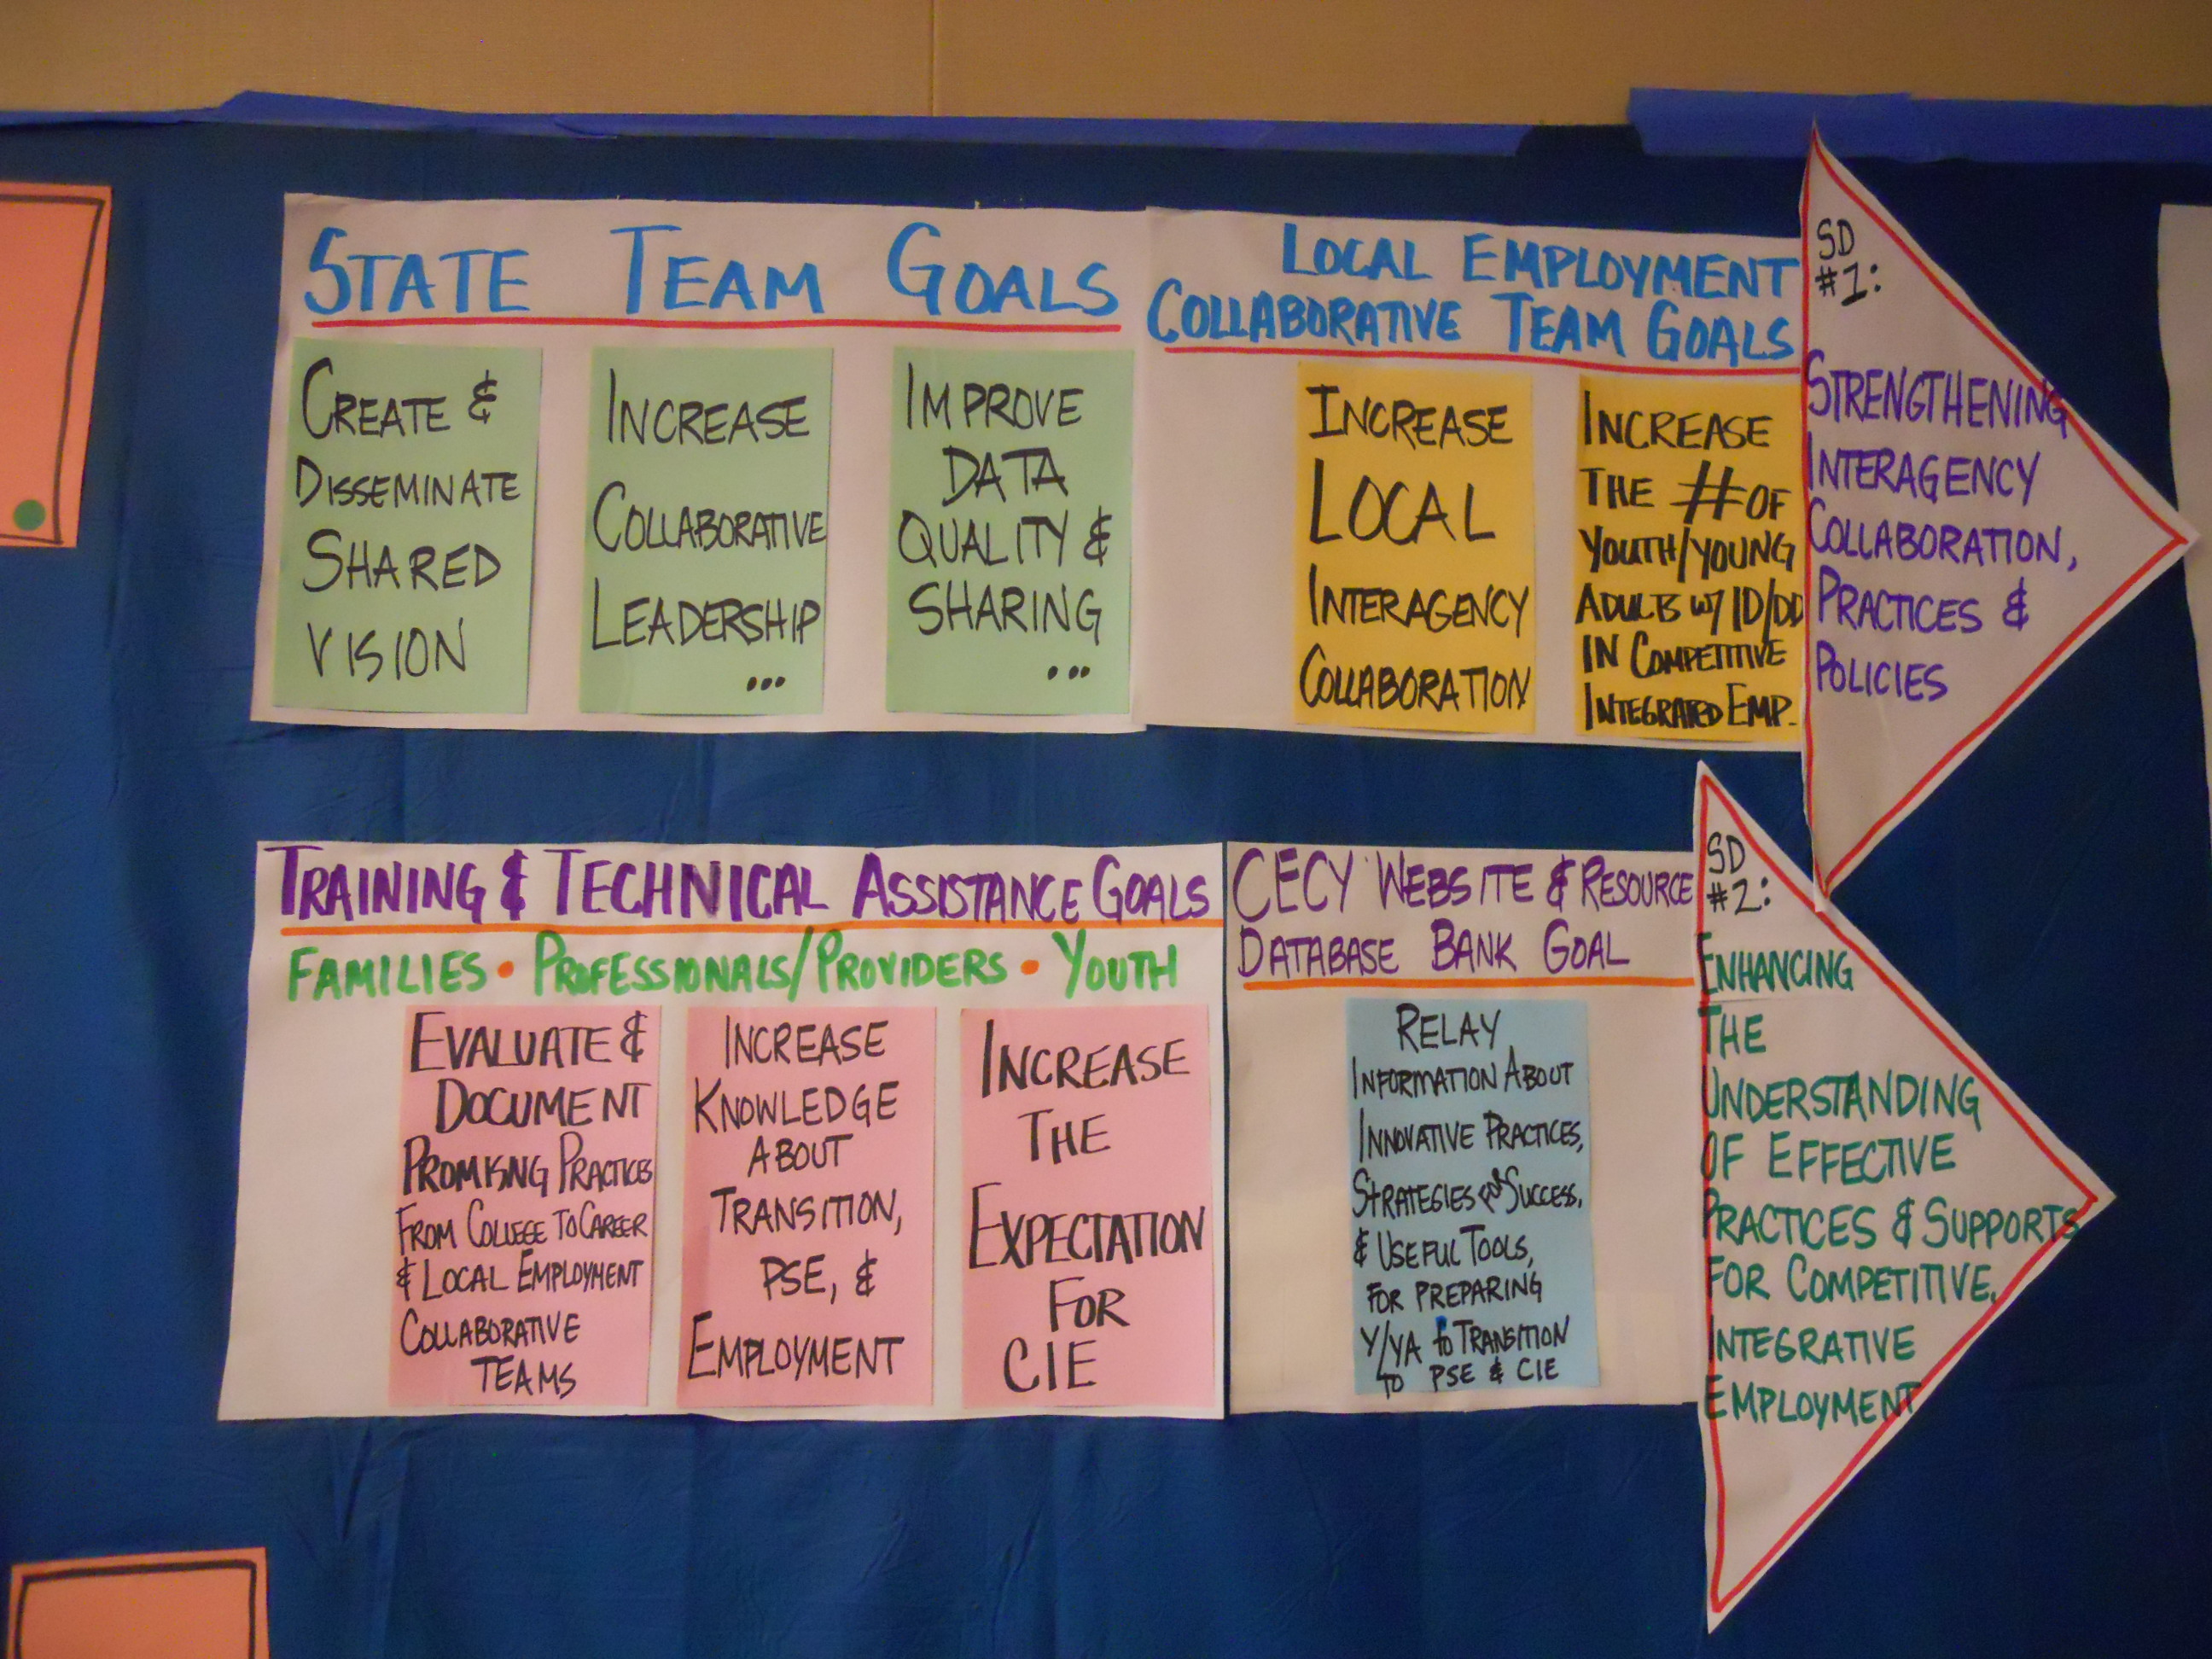 STATE TEAM GOALS
CREATE &
DISSEMINATE
SHARED
VISION
INCREASE
COLLABORATIVE
LEADERSHIP
...
IMPROVE
DATA
QUALITY &
SHARING
...
LOCAL EMPLOYMENT
COLLABORATIVE TEAM GOALS
INCREASE
LOCAL
INTERAGENCY
COLLABORATION
INCREASE
THE # OF
YOUTH/YOUNG
ADULTS W/ ID/DD
IN COMPETITIVE
INTEGRATED EMP.
SD
#1:
STRENGTHENING
INTERAGENCY
COLLABORATION,
PRACTICES &
POLICIES
TRAINING & TECHNICAL ASSISTANCE GOALS
FAMILIES • PROFESSIONALS/PROVIDERS • YOUTH
EVALUATE &
DOCUMENT
PROMISING PRACTICES
FROM COLLEGE TO CAREER
& LOCAL EMPLOYMENT
COLLABORATIVE
TEAMS
INCREASE
KNOWLEDGE
ABOUT
TRANSITION,
PSE, &
EMPLOYMENT
INCREASE
THE
EXPECTATION
FOR
CIE
CECY WEBSITE & RESOURCE
DATABASE BANK GOAL
RELAY
INFORMATION ABOUT
INNOVATIVE PRACTICES,
STRATEGIES for SUCCESS,
& USEFUL TOOLS,
FOR PREPARING
Y/YA to TRANSITION
TO PSE & CIE
SD
#2:
ENHANCING
THE
UNDERSTANDING
OF EFFECTIVE
PRACTICES & SUPPORTS
FOR COMPETITIVE,
INTEGRATIVE
EMPLOYMENT